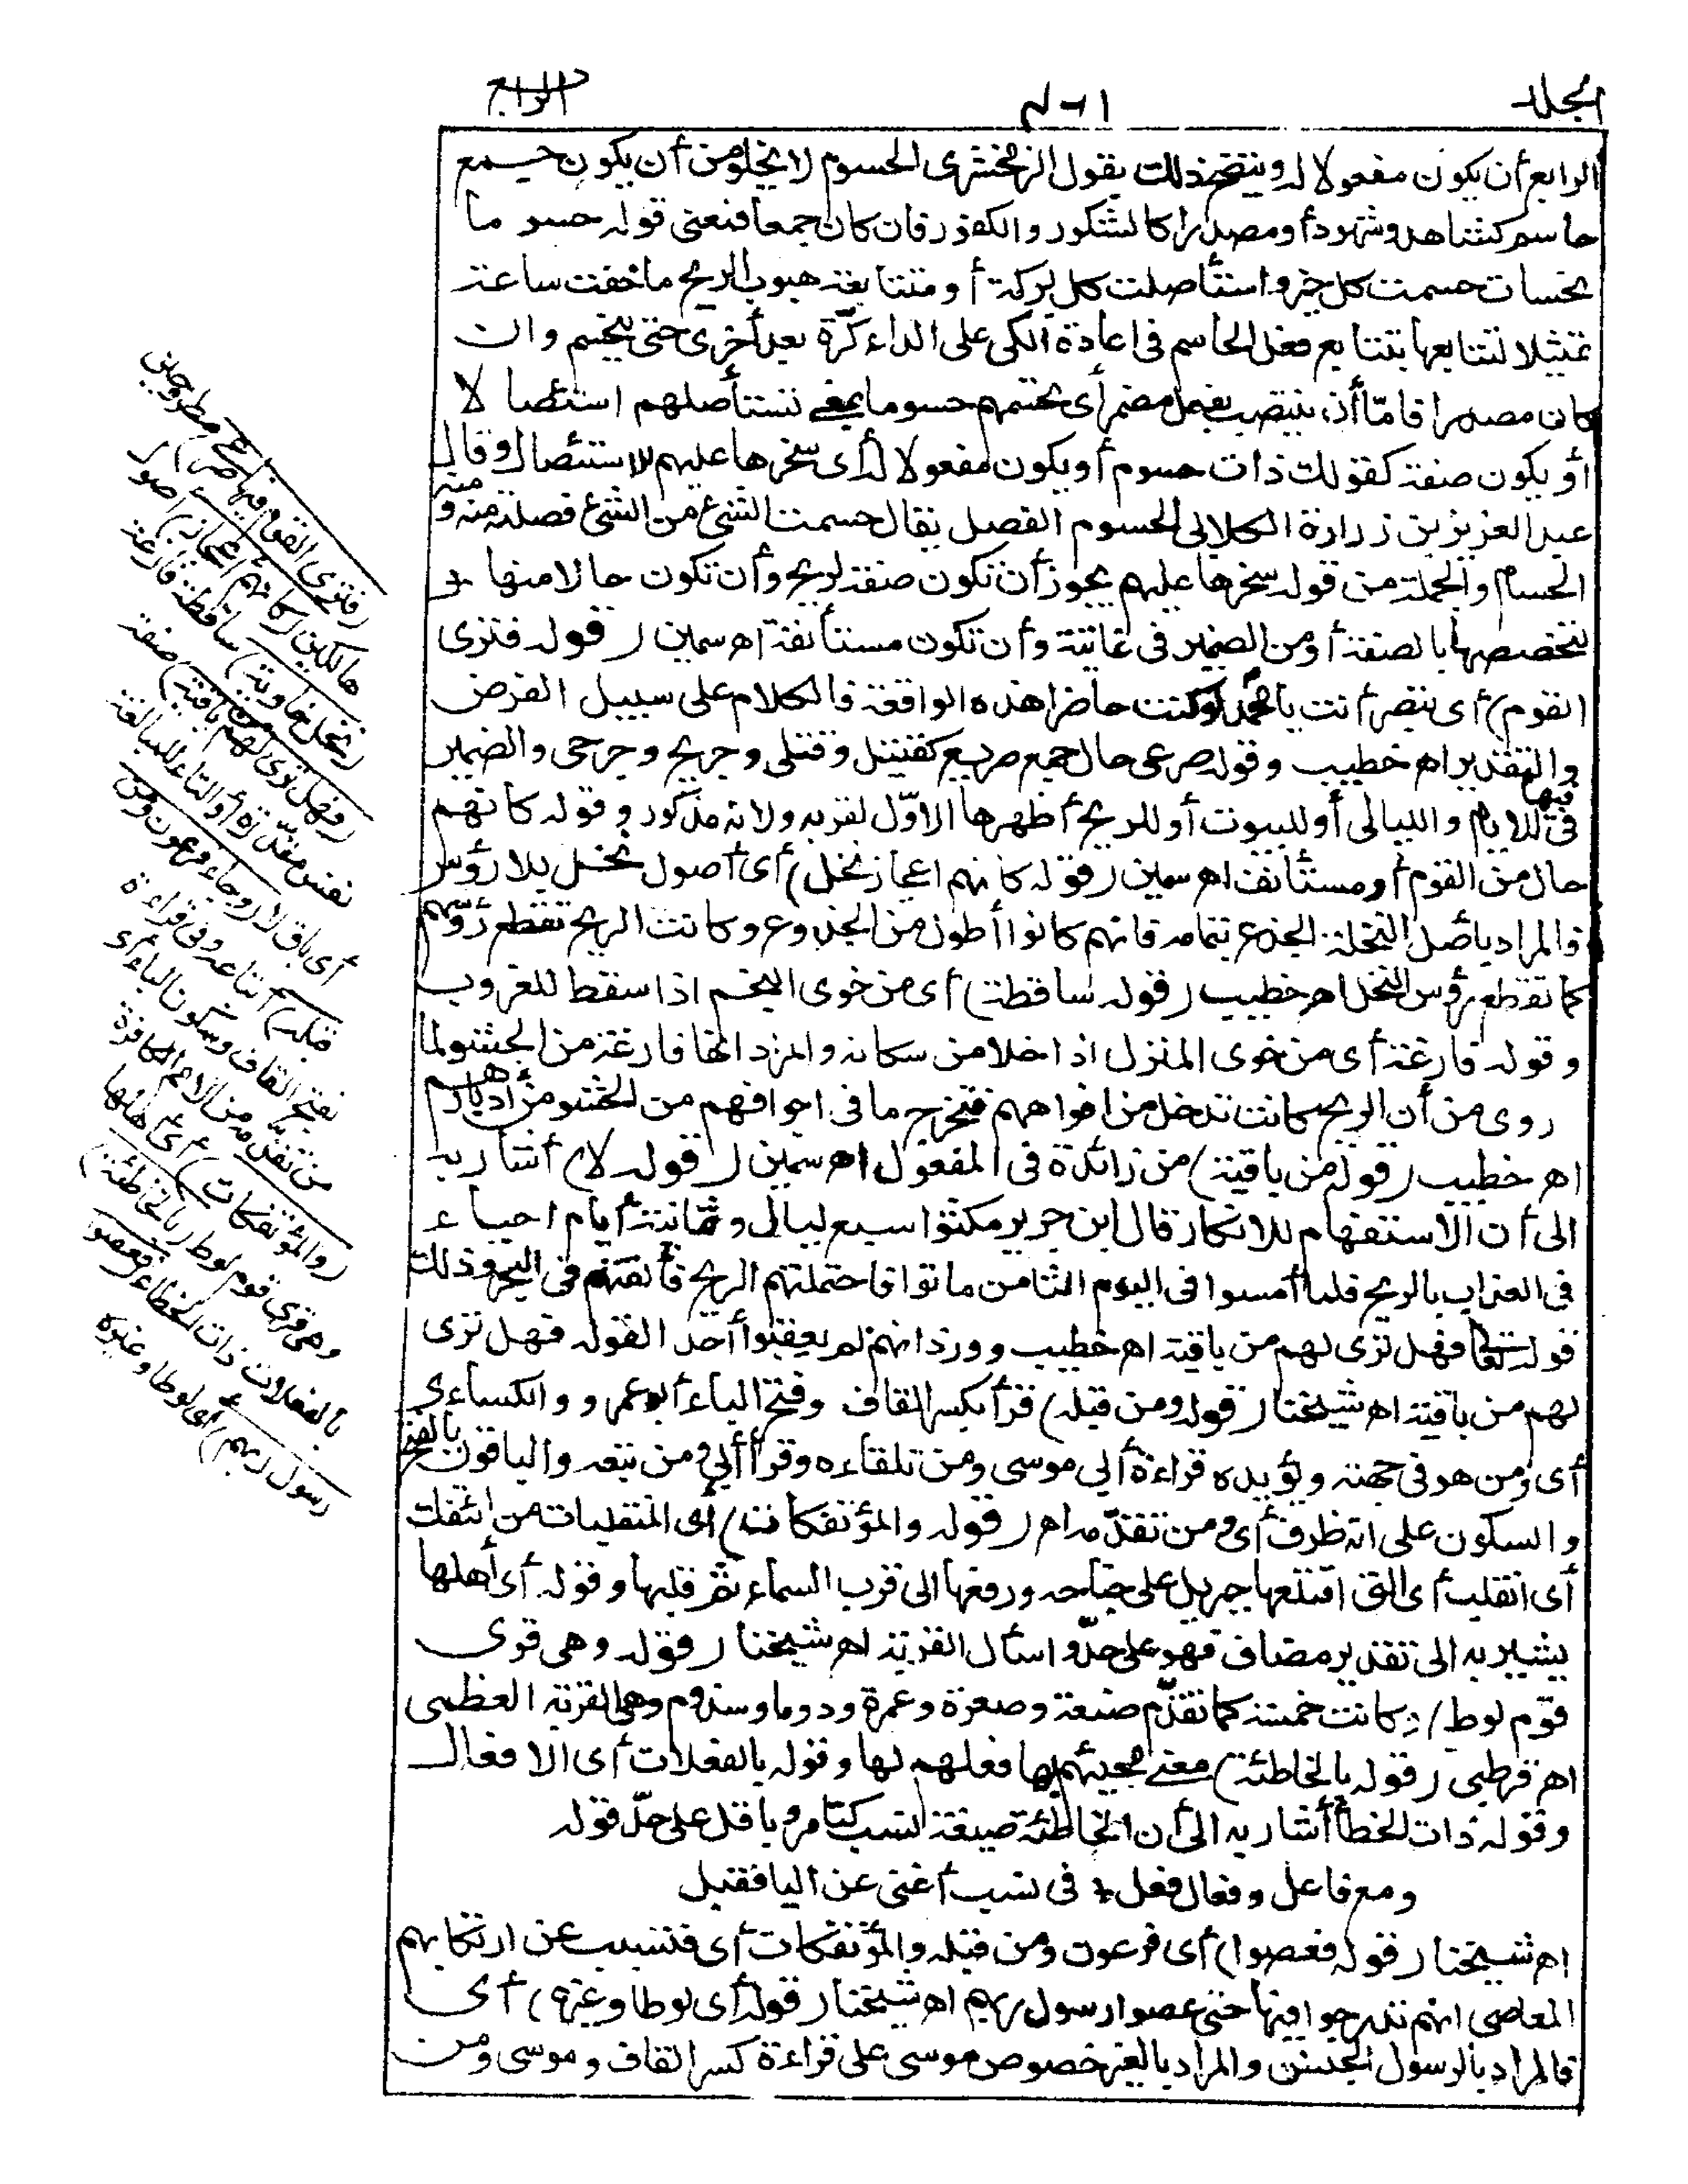 المجلد
الرابع
الرابع أن يكون مفعولا له ويتضح ذلك بقول الزمخشرى الحسوم لا يخلو من أن يكون جمع
حاسم كشاهد وشهود أو مصدرا كالشكور والكفور فان كان جمعا فمعنى قوله حسوما
نحسات حسمت كل خير واستأصلت كل بركة أو متتابعة هبوب الريح ما خفت ساعة
تمثيلا لتتابعها بتتابع فعل الحاسم فى اعادة الكى على الداء كرّة بعد أخرى حتى ينحسم وان
كان مصدرا فامّا أن ينتصب بفعل مضمر أى تحسمهم حسوما بمعنى تستأصلهم استئصالا
أو يكون صفة كقولك ذات حسوم أو يكون مفعولا له أى سخرها عليهم للاستئصال وقال
عبد العزيز بن زرارة الكلابى الحسوم الفصل يقال حسمت الشئ من الشئ فصلته منه ومنه
الحسام والجملة من قوله سخرها عليهم يجوز أن تكون صفة لريح وأن تكون حالا منها
لتخصصها بالصفة أو من الضمير فى عاتية وأن تكون مستأنفة اه سمين (قوله فترى
القوم) أى يتصر أنت يا محمد لو كنت حاضرا هذه الواقعة فالكلام على سبيل الفرض
والتقدير اه خطيب وقوله صرعى حال جمع صريع كقتيل وقتلى وجريح وجرحى والضمير
فى فيها للايام والليالى أو للبيوت أو للريح أظهرها الاوّل لقربه ولانه مذكور وقوله كانهم
حال من القوم أو مستأنف اه سمين (قوله كانهم اعجاز نخل) أى أصول نخل بلا رؤس
فالمراد بأصل النخلة الجذع بتمامه فانهم كانوا أطول من الجذوع وكانت الريح تقطع رؤسهم
كما تقطع رؤس النخل اه خطيب (قوله ساقطة) أى من خوى النجم اذا سقط للغروب
وقوله فارغة أى من خوى المنزل اذا خلا من سكانه والمراد انها فارغة من الحشو لما
روى من أن الريح كانت تدخل من افواههم فتخرج ما فى اجوافهم من الحشو من أدبارهم
اه خطيب (قوله من باقية) من زائدة فى المفعول اه سمين (قوله لا) أشار به
الى أن الاستفهام للانكار قال ابن جرير مكثوا سبع ليال وثمانية أيام احياء
فى العذاب بالريح فلما أمسوا فى اليوم الثامن ماتوا فاحتملتهم الريح فألقتهم فى البحر وذلك
قوله تعالى فهل ترى لهم من باقية اه خطيب وورد انهم لم يعقبوا أحد القوله فهل ترى
لهم من باقية اه شيخنا (قوله ومن قبله) قرأ بكسر القاف وفتح الباء أبو عمرو والكساءى
أى ومن هو فى جهته ويؤيده قراءة أبى موسى ومن تلقاءه وقرأ أبىّ ومن تبعه والباقون بالفتح
والسكون على انه ظرف أى ومن تقدّمه اه (قوله والمؤتفكات) أى المنقلبات من ائتفك
أى انقلب أى التى اقتلعها جبريل على جناحه ورفعها الى قرب السماء ثم قلبها وقوله أى أهلها
يشير به الى تقدير مضاف فهو على حدّ واسأل القرية اه شيخنا (قوله وهى قرى
قوم لوط) وكانت خمسة كما تقدّم صنعة وصعرة وعمرة ودوما وسذوم وهى القرية العظمى
اه قرطبى (قوله بالخاطئة) معنى مجيئهم بها فعلهم لها وقوله بالفعلات أى الافعال
وقوله ذات الخطأ أشار به الى أن الخاطئة صيغة نسب كتامر وباقل على حدّ قوله
ومع فاعل وفعال فعل فى نسب أغنى عن اليا فقبل
اه شيخنا (قوله فعصوا) أى فرعون ومن قبله والمؤتفكات أى فتسبب عن ارتكابهم
المعاصى انهم تدرجوا فيها حتى عصوا رسول ربهم اه شيخنا (قوله أى لوطا وغيره) أى
فالمراد بالرسول الجنس والمراد بالغير خصوص موسى على قراءة كسر القاف وموسى ومن
(فترى القوم فيها صرعى) مطروحين
هالكين (كأنهم أعجاز) أصول
(نخل خاوية) ساقطة فارغة
(فهل ترى لهم من باقية) صفة
نفس مقدّرة أو التاء للمبالغة
أى باق لا (وجاء فرعون ومن
قبله) أتباعه وفى قراءة
بفتح القاف وسكون الباء أى
من تقدّمه من الامم الكافرة
(والمؤتفكات) أى أهلها
وهى قرى قوم لوط (بالخاطئة)
بالفعلات ذات الخطاء (فعصوا
رسول ربهم) أى لوطا وغيره